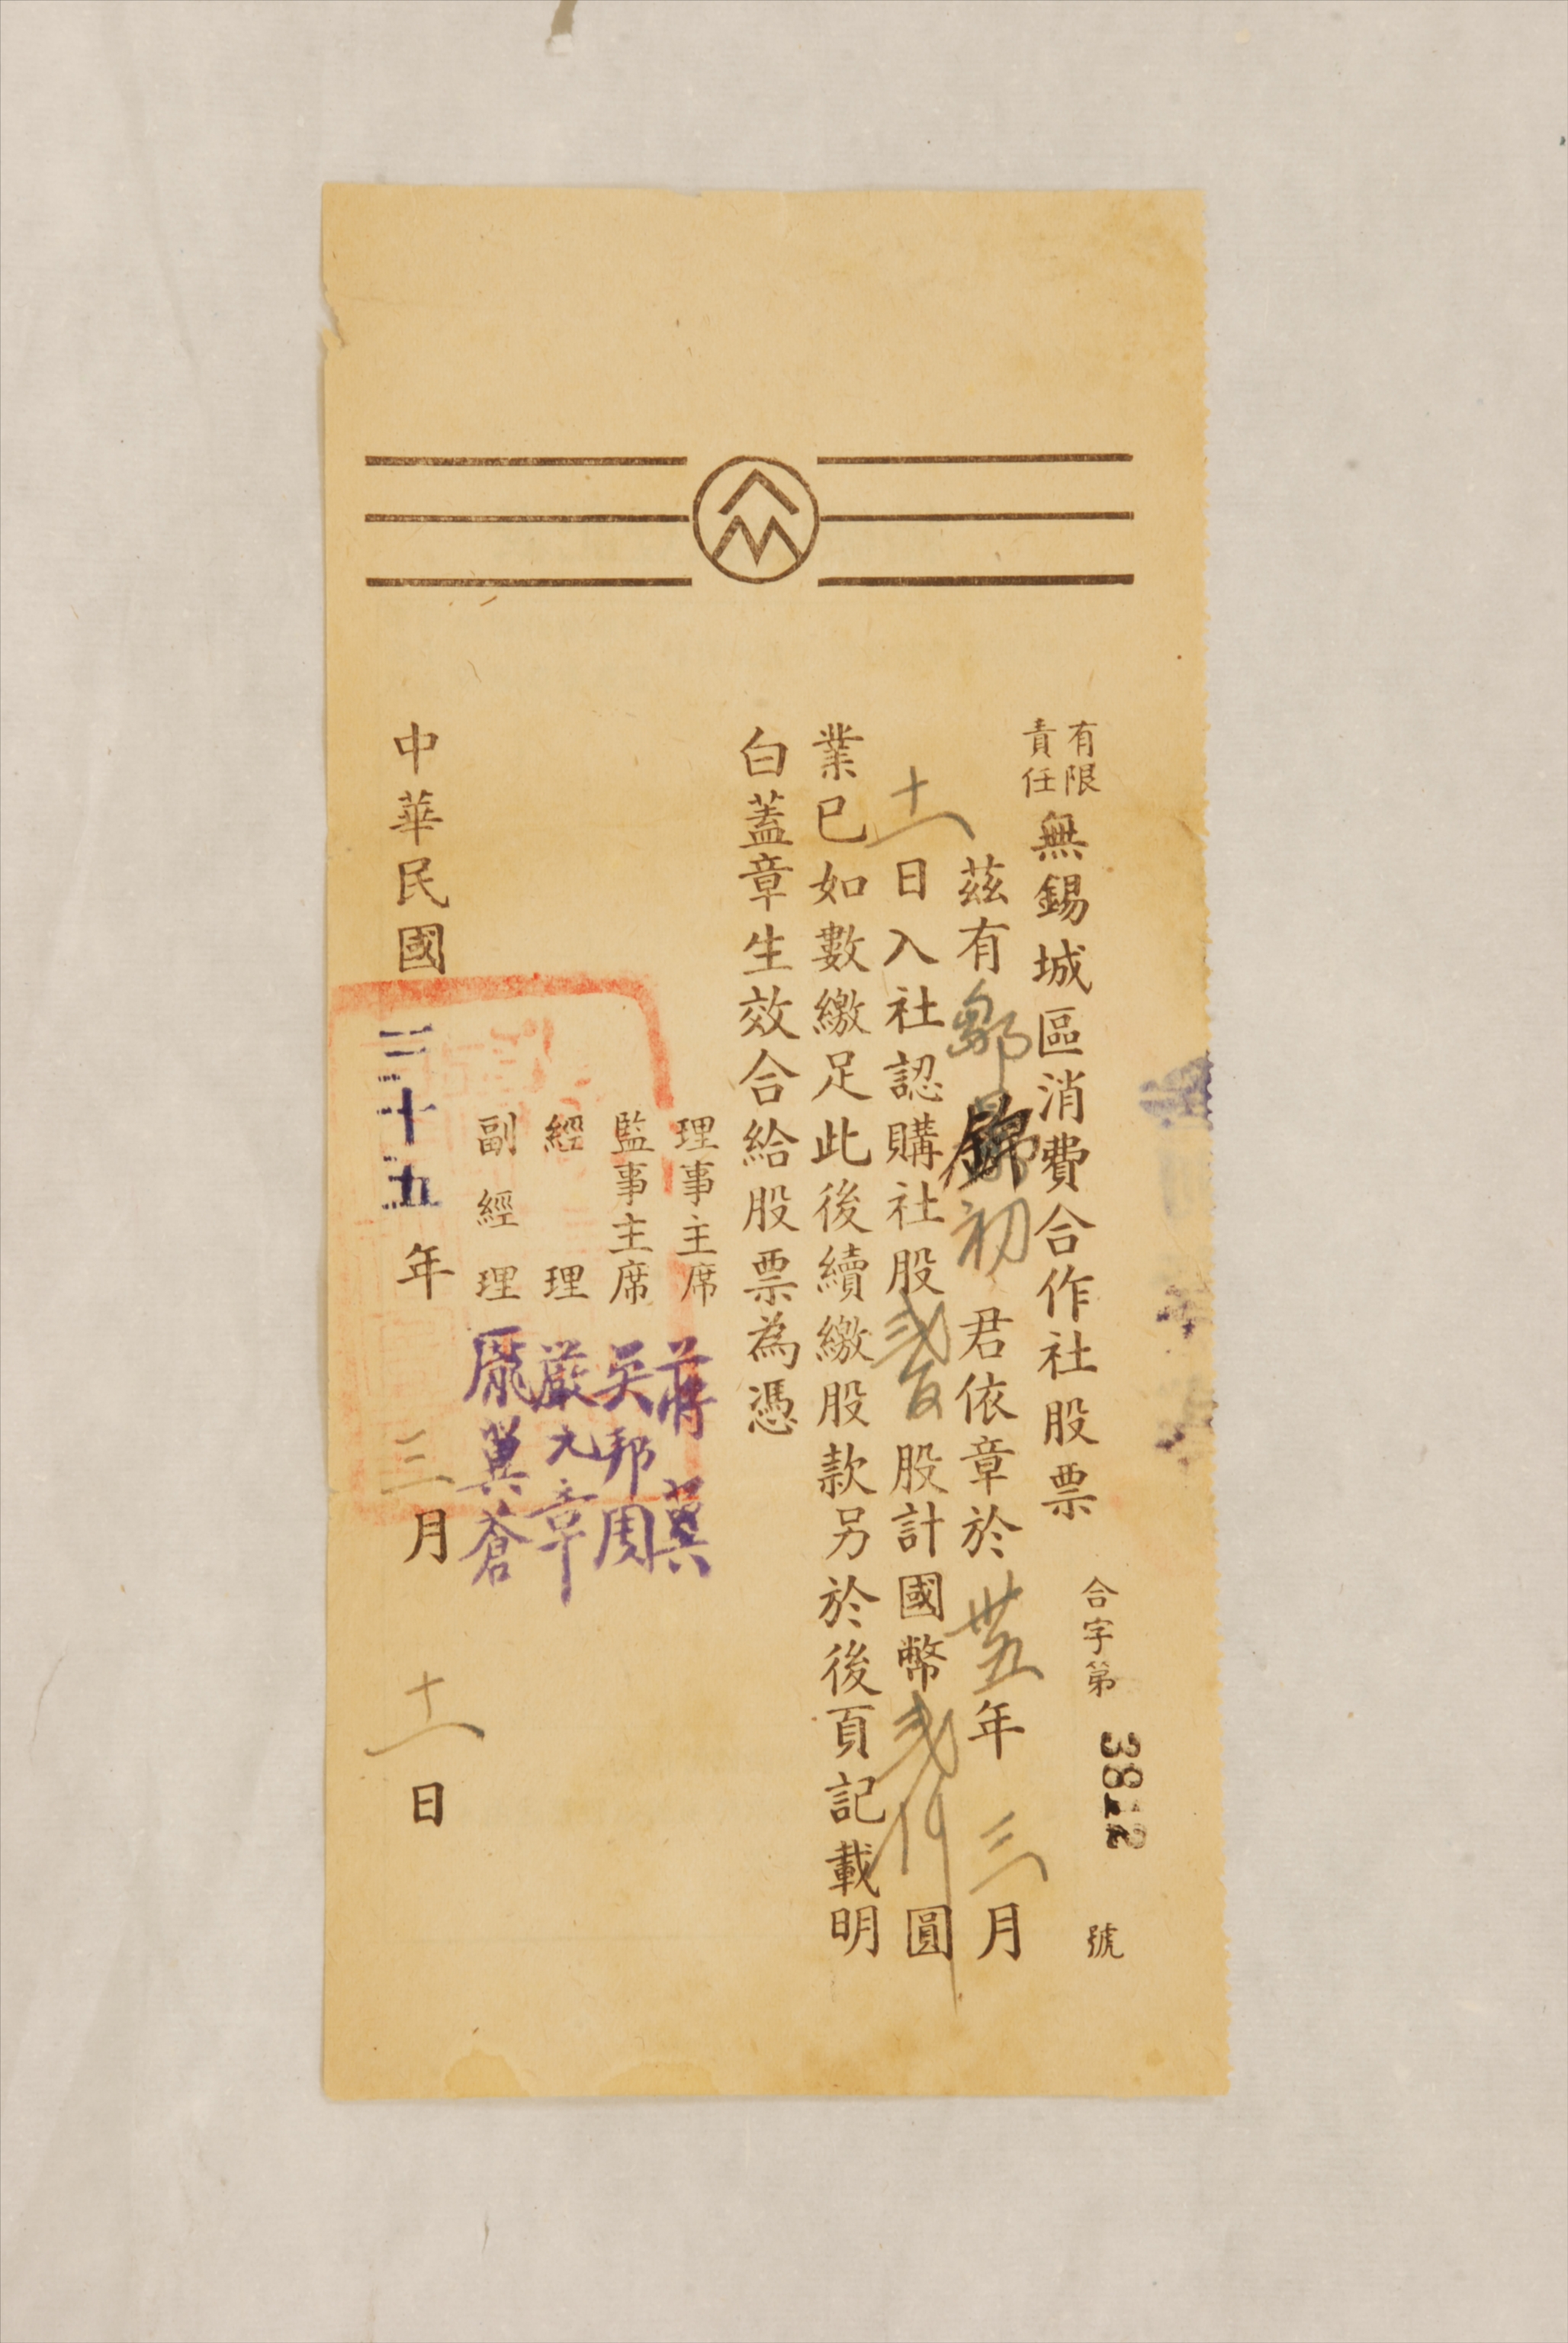 有限責任無錫城區消費合作社股票
合字第3812號
茲有鄒錦初君依章於卅五年三月
十一日入社認購社股貳百股計國幣貳仟圓
業已如數繳足此後續繳股款另於後頁記載明
白蓋章生效合給股票為憑
理事主席 蔣
監事主席 吳邦周
經理 嚴九章
副經理 龐翼蒼
中華民國三十五年三月十一日